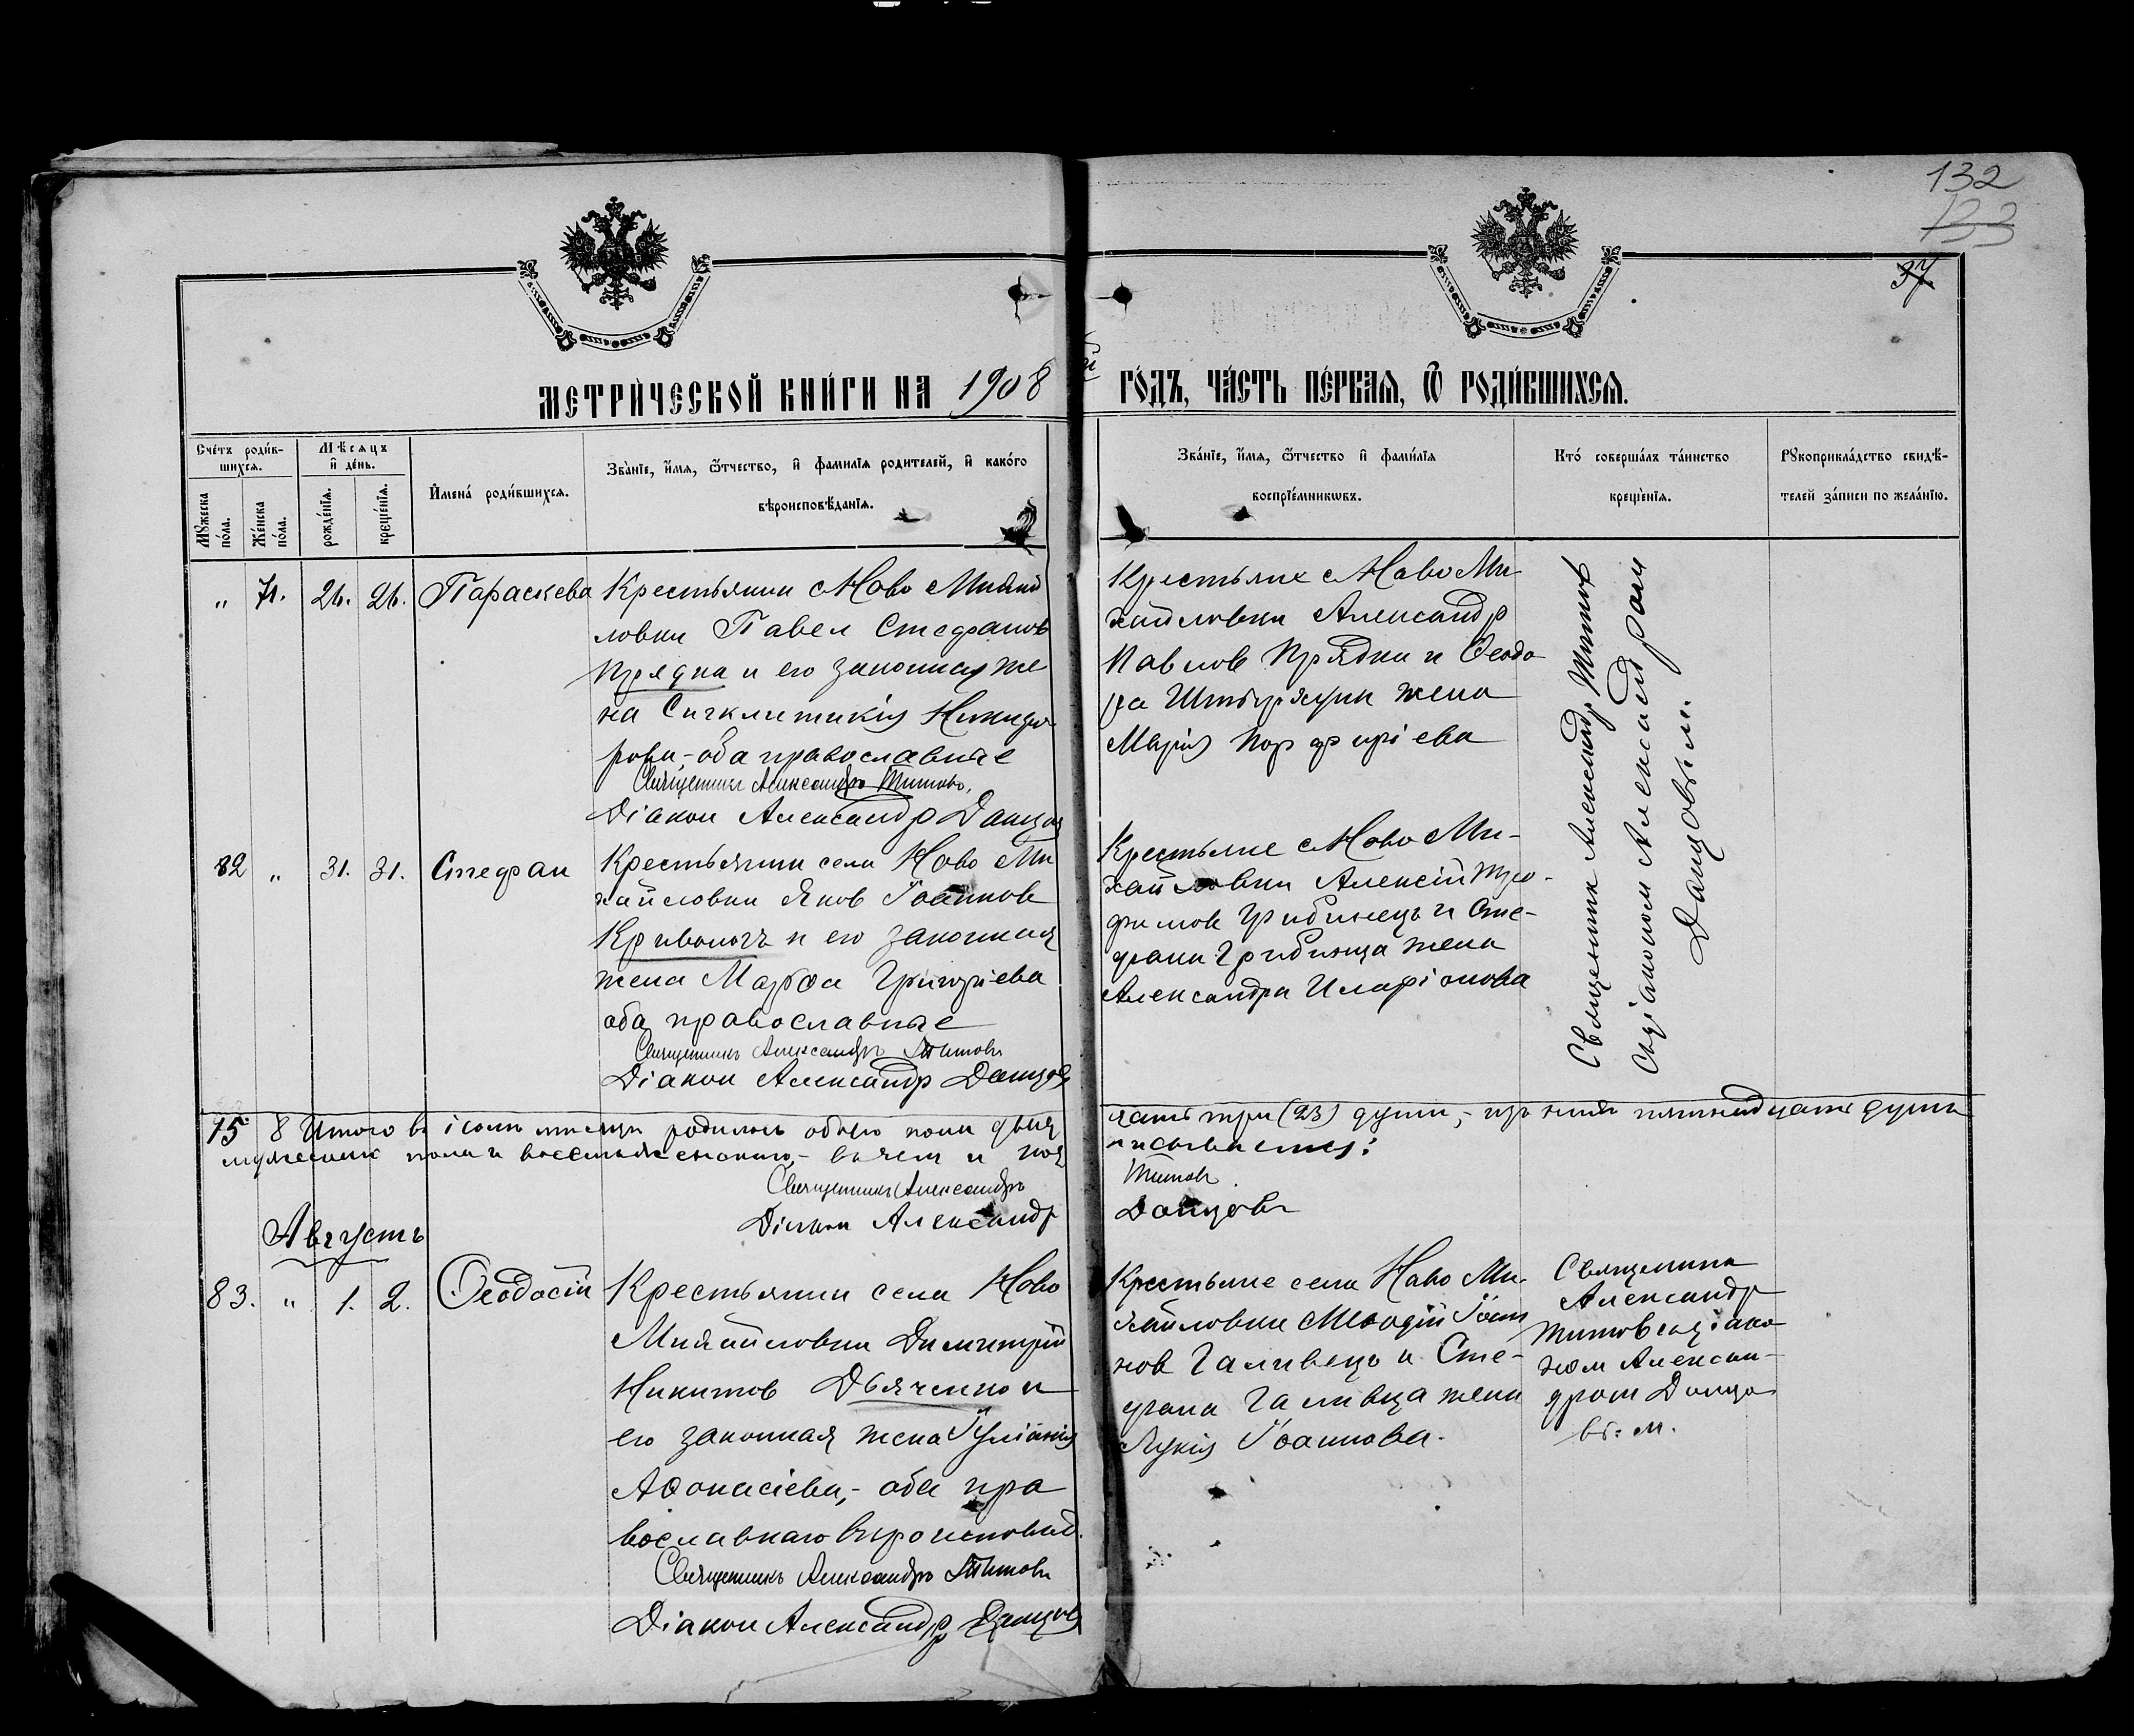 132
133
37
МЕТРИ́ЧЕСКОЙ КНИ́ГИ НА 1908 й ГО́ДЪ, ЧА́СТЬ ПЕ́РВАЯ, Ѽ РОДИ́ВШИХСЯ.
Сче́тъ роди́в-
шихся.
Мꙋжеска по́ла.
Же́нска по́ла.
Мѣсяцъ
и҆ де́нь.
рожде́нїя.
креще́нїя.
И҆мена́ роди́вшихся.
Зва́нїе, и҆́мя, ѻ҆́тчество, и҆ фами́лїя родителей, и҆ како́го
вѣроисповѣ́данїя.
Зва́нїе, и҆́мя, ѻ҆́тчество и҆ фами́лїя
воспрїе́мникѡвъ.
Кто́ соверша́лъ та́инство
креще́нїя.
Рꙋкоприкла́дство свидѣ́-
телей за́писи по жела́нїю.
„ 71. 26. 26. Параскева
Крестьянин с Ново Михай
ловки Павел Стефанов
Прядка и его законная же
на Сигклитикія Никифо
рова,- оба православные
Священникъ Александръ Титовъ.
Діакон Александр Данцов
Крестьяне с Ново Ми
хайловки Александр
Павлов Прядки и Ѳеодо
ра жена
Марія Порфиріева
Священник Александр Титов
с діаконом Александром
Данцовым.
82 „ 31. 31. Стефан
Крестьянин села Ново Ми
хайловки Яков Іоаннов
Кривоногъ и его законная
жена Марѳа Григоріева
оба православные
Священникъ Александръ Титовъ
Діакон Александр Данцов
Крестьяне с Ново Ми-
хайловки Алексій Тро-
фимов Грибинецъ и Сте-
фана Грибинца жена
Александра Иларіонова
15 8 Итого в іюль месяце родилось обоего пола двад
цать три (23) души,- изъ них пятнадцать душъ
мужеского пола и восемь женского,- в чем и под
писываемся:
Священникъ Александръ Титовъ
Діакон Александр Данцовъ
Августъ
83. „ 1. 2. Ѳеодосій
Крестьянин села Ново
Михайловки Димитрій
Никитов Дьяченко и
его законная жена Іуліанія
Аѳонасіева,- оба пра
вославнаго вероисповед.
Священникъ Александръ Титовъ
Діакон Александр Данцов
Крестьяне села Ново Ми-
хайловки Меѳодій Іоан
нов Галивецъ и Сте-
фана Галивца жена
Лукія Іоаннова.
Священник
Александр
Титов с діако
ном Алексан-
дром Данцо
вы-м.